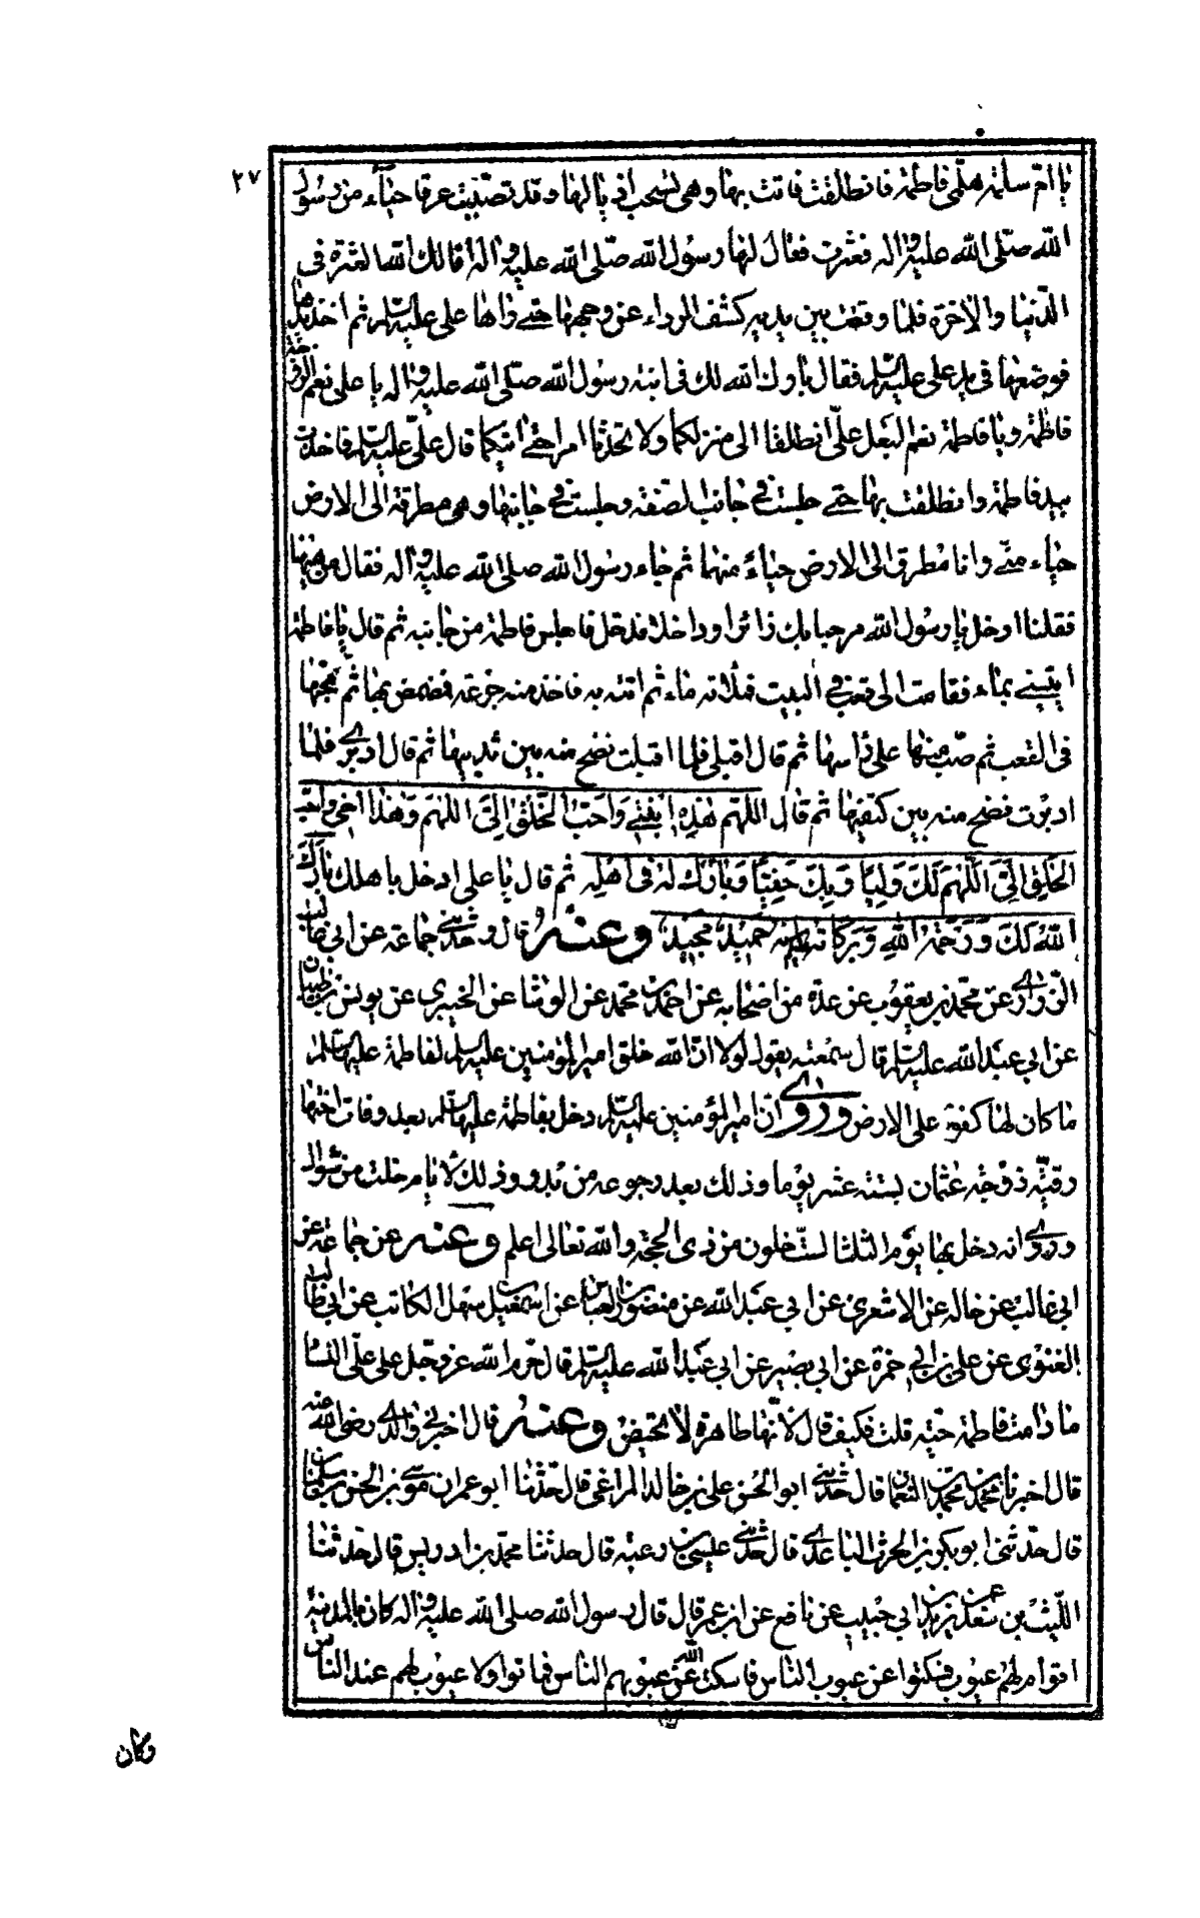 ٢٧
يا ام سلمة هلمى فاطمة فانطلقت فاتت بها وهى تسحب اذيالها وقد تصببت عرقا حياء من رسول
الله صلى الله عليه واله فعثرت فقال لها رسول الله صلى الله عليه واله اقالك الله العثرة فى
الدنيا والاخرة فلما وقفت بين يديه كشف الرداء عن وجهها حتى راها على عليه السلم ثم اخذ يدها
فوضعها فى يد على عليه السلم فقال بارك الله لك فى ابنة رسول الله صلى الله عليه واله يا على نعم الزوجة
فاطمة ويا فاطمة نعم البعل على انطلقا الى منزلكما ولا تحدثا امرا حتى اتيكما قال على عليه السلم فاخذت
بيد فاطمة وانطلقت بها حتى جلست فى جانب الصفة وجلست فى جانبها وهى مطرقة الى الارض
حياء منى وانا مطرق الى الارض حياء منها ثم جاء رسول الله صلى الله عليه واله فقال من ههنا
فقلنا ادخل يا رسول الله مرحبا بك زائرا وداخلا فدخل فاجلس فاطمة من جانبه ثم قال يا فاطمة
ايتينى بماء فقامت الى قعب فى البيت فملاته ماء ثم اتته به فاخذ منه جرعة فمضمض بها ثم مجها
فى القعب ثم صب منها على راسها ثم قال اقبلى فلما اقبلت نضح منه بين ثدييها ثم قال ادبرى فلما
ادبرت نضح منه بين كتفيها ثم قال اللهم هذه ابنتى واحب الخلق الى اللهم وهذا اخى واحب
الخلق الى اللهم لك وليا وبك حفيا وبارك له فى اهله ثم قال يا على ادخل باهلك بارك
الله لك ورحمة الله وبركاته عليكم انه حميد مجيد وعنه قال وحدثنى جماعة عن ابى غالب
الزرارى عن محمد بن يعقوب عن عدة من اصحابه عن احمد بن محمد عن الوشا عن الخيبرى عن يونس بن ظبيان
عن ابى عبد الله عليه السلم قال سمعته يقول لولا ان الله خلق امير المؤمنين عليه السلم لفاطمة عليها السلم
ما كان لها كفو على الارض وروى ان امير المؤمنين عليه السلم دخل بفاطمة عليها السلم بعد وفات اختها
رقية زوجة عثمان بستة عشر يوما وذلك بعد رجوعه من بدر وذلك لايام خلت من شوال
وروى انه دخل بها يوم الثلثا لست خلون من ذى الحجة والله تعالى اعلم وعنه عن جماعة عن
ابى غالب عن خاله عن الاشعرى عن ابى عبد الله عن منصور بن العباس عن اسمعيل بن سهل الكاتب عن ابى طالب
الغنوى عن على بن ابى حمزة عن ابى بصير عن ابى عبد الله عليه السلم قال حرم الله عز وجل على على النسا
ما دامت فاطمة حية قلت فكيف قال لانها طاهرة لا تحيض وعنه قال اخبرنى والدى رضى الله عنه
قال اخبرنا محمد بن محمد بن النعمان قال حدثنى ابو الحسن على بن خالد المراغى قال حدثنا ابو عمران موسى بن الحسن بن سلمان
قال حدثنى ابو بكر بن الحرث الباغندى قال حدثنى عيسى بن رغبة قال حدثنا محمد بن ادريس قال حدثنا
الليث بن سعد عن يزيد بن ابى حبيب عن نافع عن ابن عمر قال قال رسول الله صلى الله عليه واله كان بالمدينة
اقوام لهم عيوب فسكتوا عن عيوب الناس فاسكت الله عن عيوبهم الناس فماتوا ولا عيوب لهم عند الناس
وكان